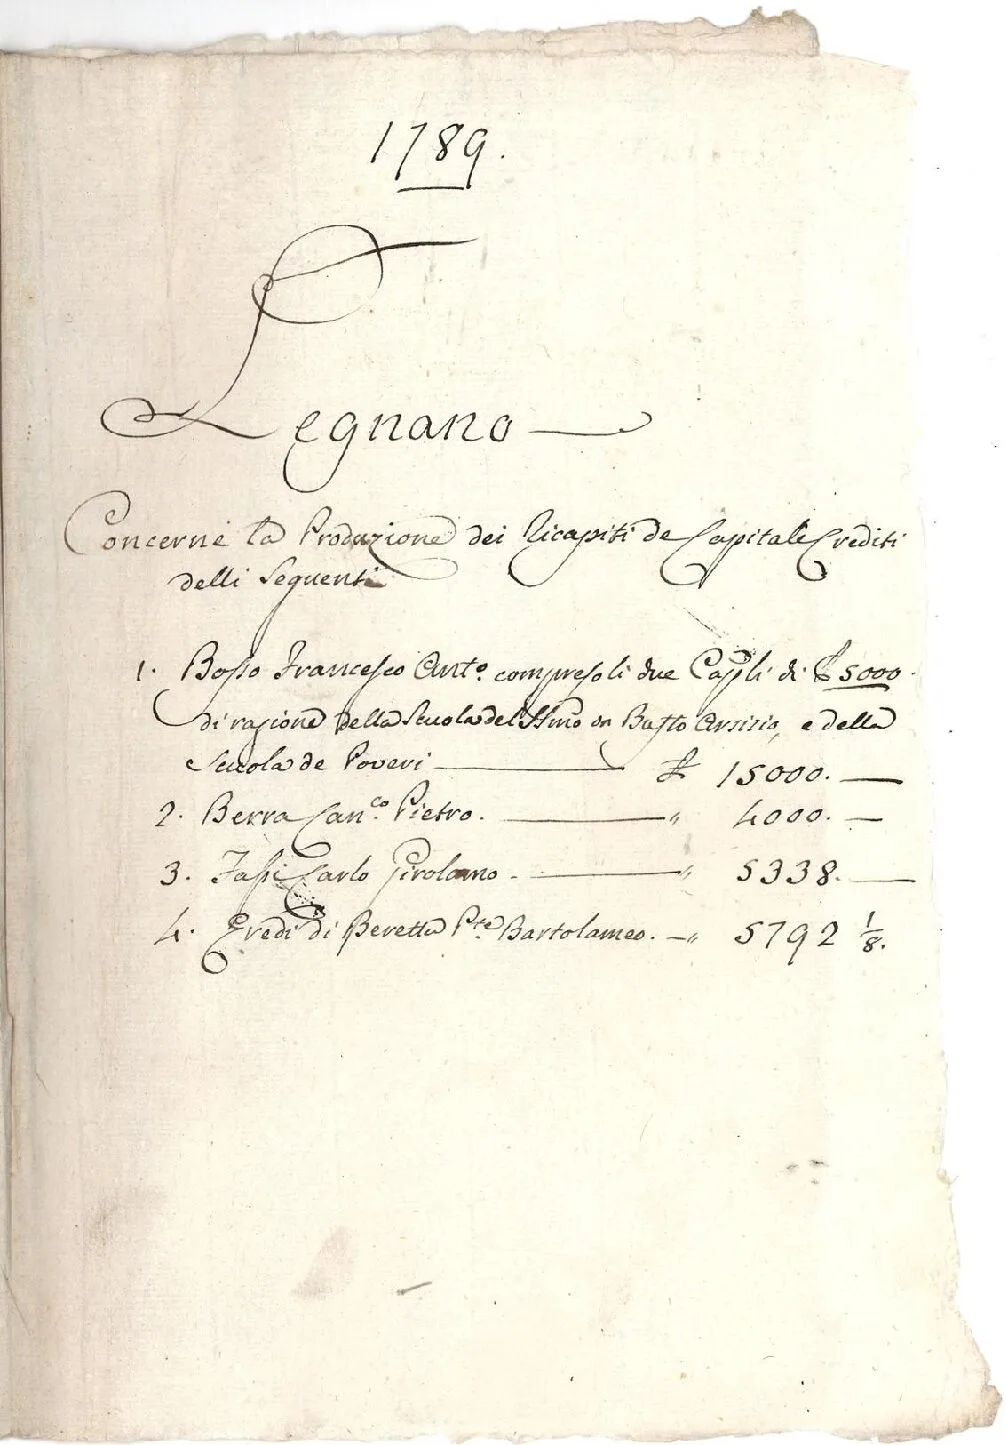 1789.
Legnano
Concerne la Produzione dei Ricapiti de Capitale Crediti
delli Seguenti
1. Bosso Francesco Anto. compresoli due Cap.li di £ 5000.
di ragione della Scuola del SSmo in Busto Arsizio, e della
Scuola de Poveri £ 15000.
2. Berra Can.co Pietro. " 4000.
3. Tassi Carlo Girolamo. " 5338.
4. Eredi di Beretta Pte. Bartolameo. " 5792 1/8.